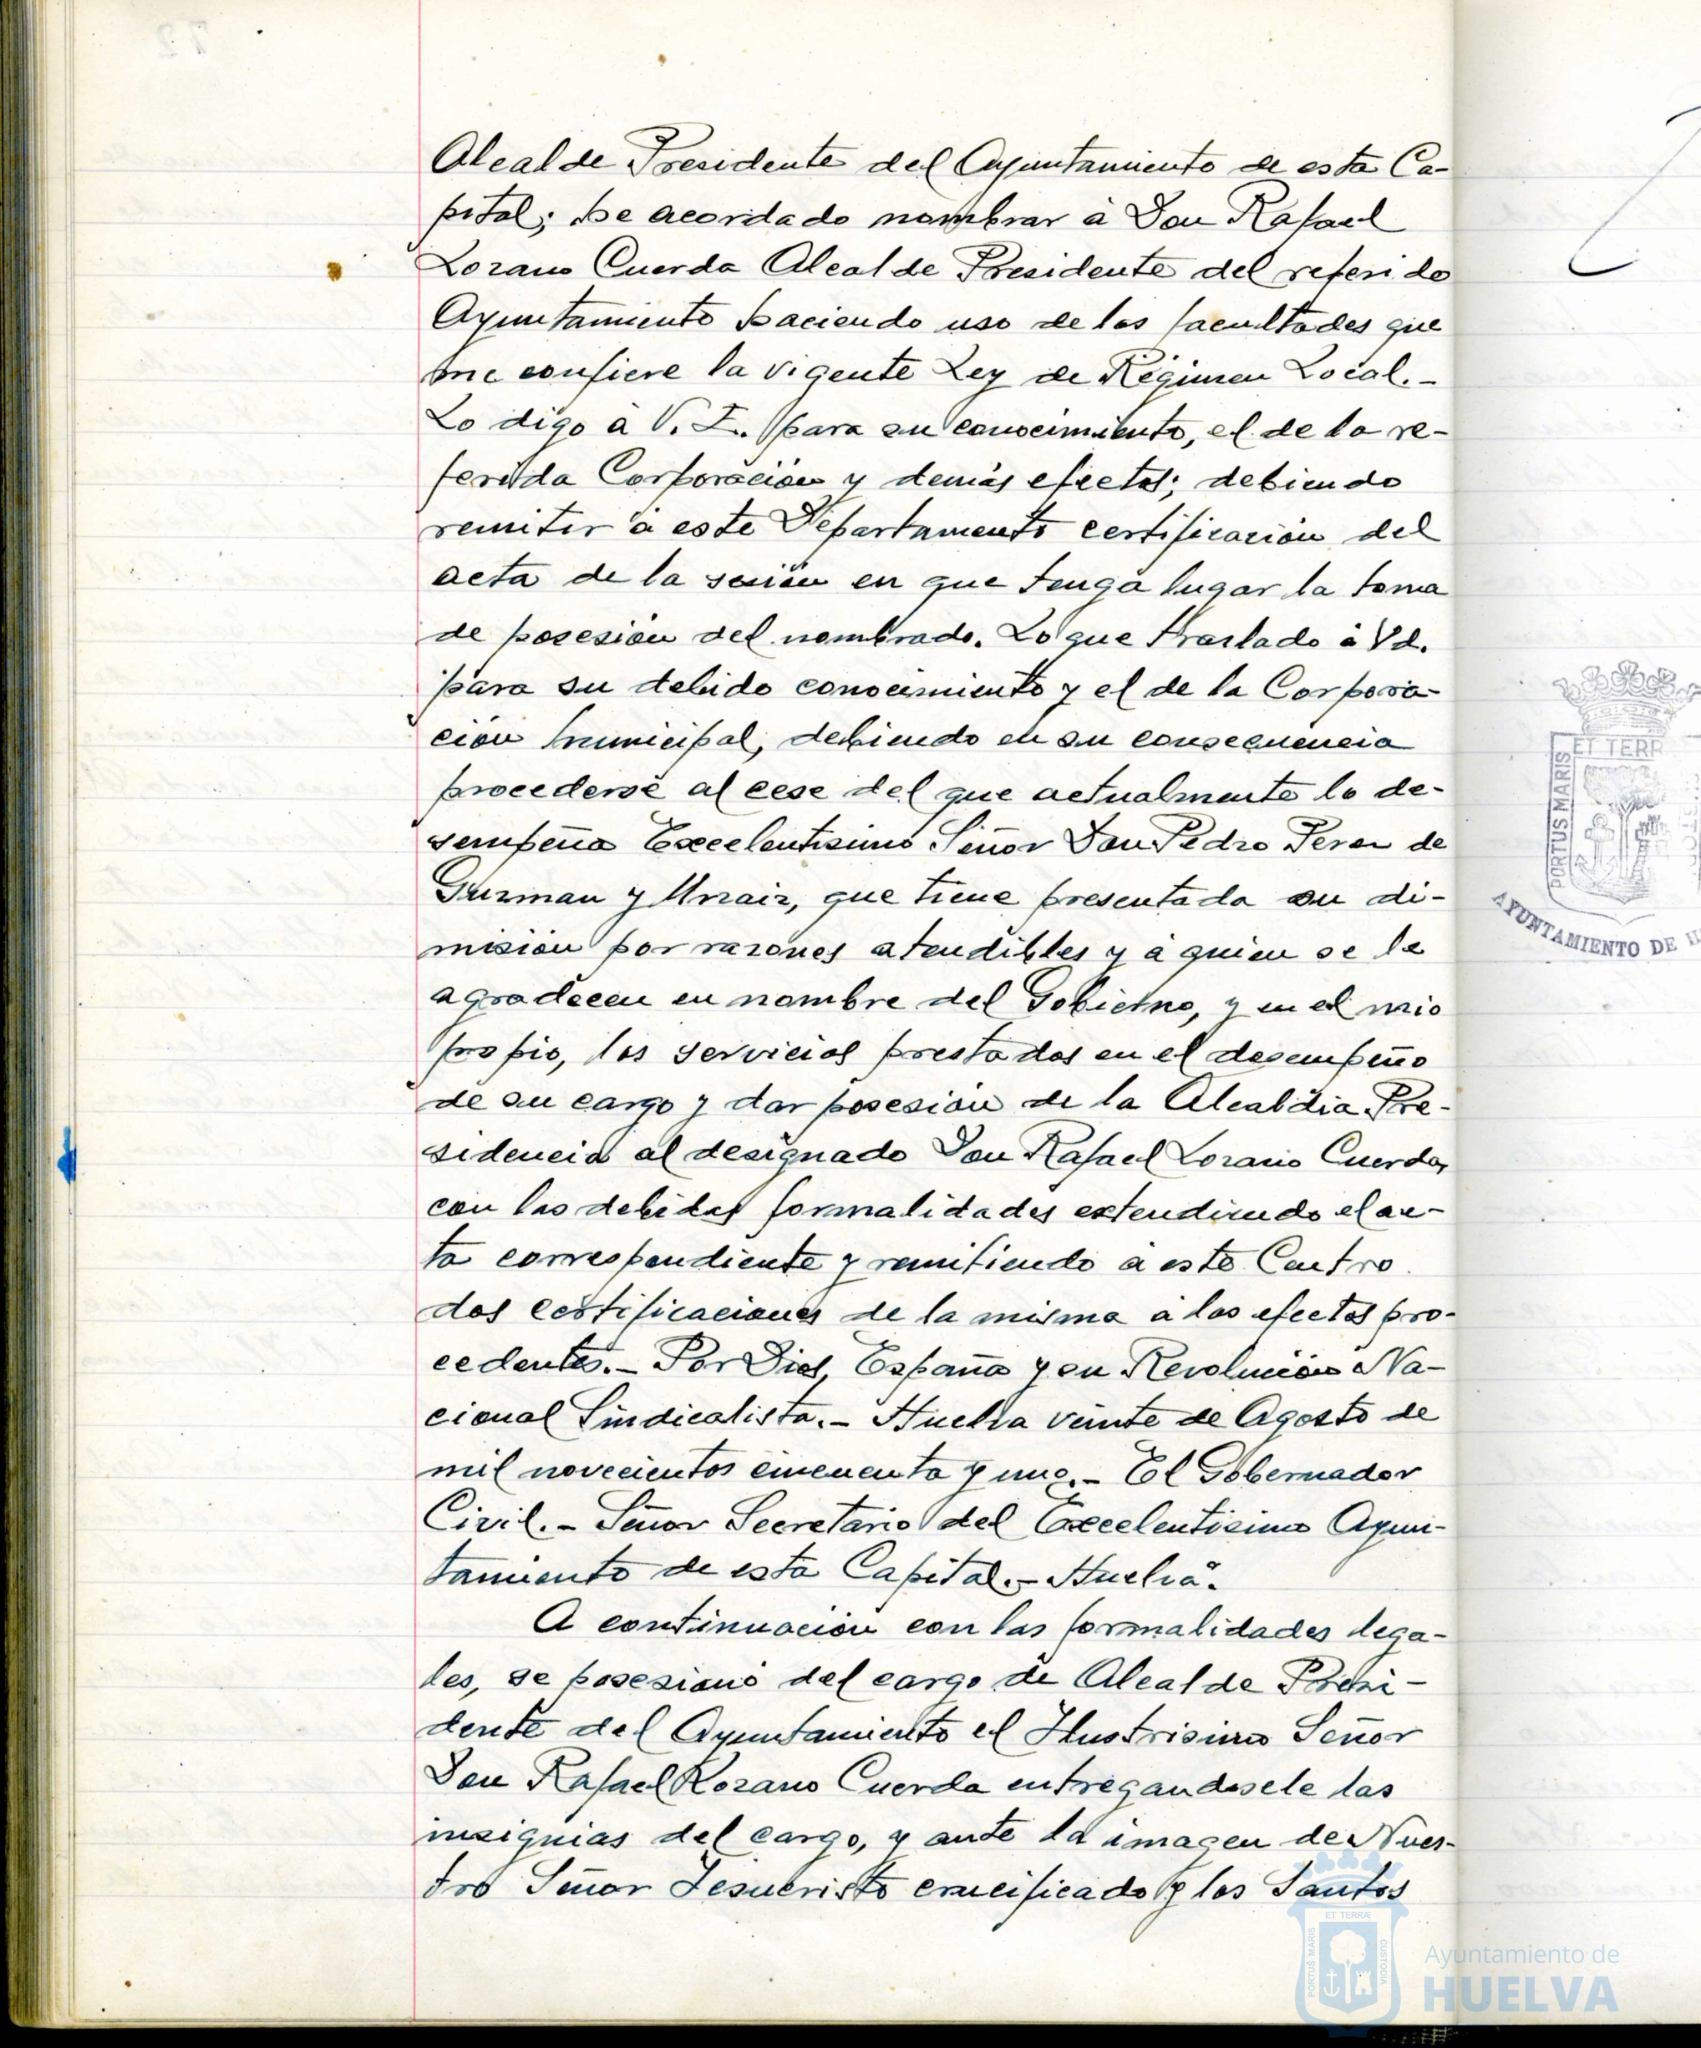 Alcalde Presidente del Ayuntamiento de esta Ca-
pital; he acordado nombrar á Don Rafael
Lozano Cuerda Alcalde Presidente del referido
Ayuntamiento haciendo uso de las facultades que
me confiere la vigente Ley de Régimen Local.-
Lo digo á V. E. para su conocimiento, el de la re-
ferida Corporación y demás efectos; debiendo
remitir á este Departamento certificación del
acta de la sesión en que tenga lugar la toma
de posesión del nombrado. Lo que traslado á Vd.
para su debido conocimiento y el de la Corpora-
ción Municipal, debiendo en su consecuencia
procederse al cese del que actualmente lo de-
sempeña Excelentisimo Señor Don Pedro Perez de
Guzman y Urzaiz, que tiene presentada su di-
misión por razones atendibles y á quien se le
agradecen en nombre del Gobierno, y en el mio
propio, los servicios prestados en el desempeño
de su cargo y dar posesión de la Alcaldia Pre-
sidencia al designado Don Rafael Lozano Cuerda,
con las debidas formalidades extendiendo el ac-
ta correspondiente y remitiendo á este Centro
dos certificaciones de la misma á los efectos pro-
cedentes.- Por Dios, España y su Revolución Na-
cional Sindicalista.- Huelva veinte de Agosto de
mil novecientos cincuenta y uno.- El Gobernador
Civil.- Señor Secretario del Excelentisimo Ayun-
tamiento de esta Capital.- Huelva".
A continuación con las formalidades lega-
les, se posesionó del cargo de Alcalde Presi-
dente del Ayuntamiento el Ilustrisimo Señor
Don Rafael Lozano Cuerda entregandosele las
insignias del cargo, y ante la imagen de Nues-
tro Señor Jesucristo crucificado y los Santos
ET TERR
PORTUS MARIS
AYUNTAMIENTO DE H
ET TERRÆ
PORTUS MARIS
CUSTODIA
Ayuntamiento de
HUELVA